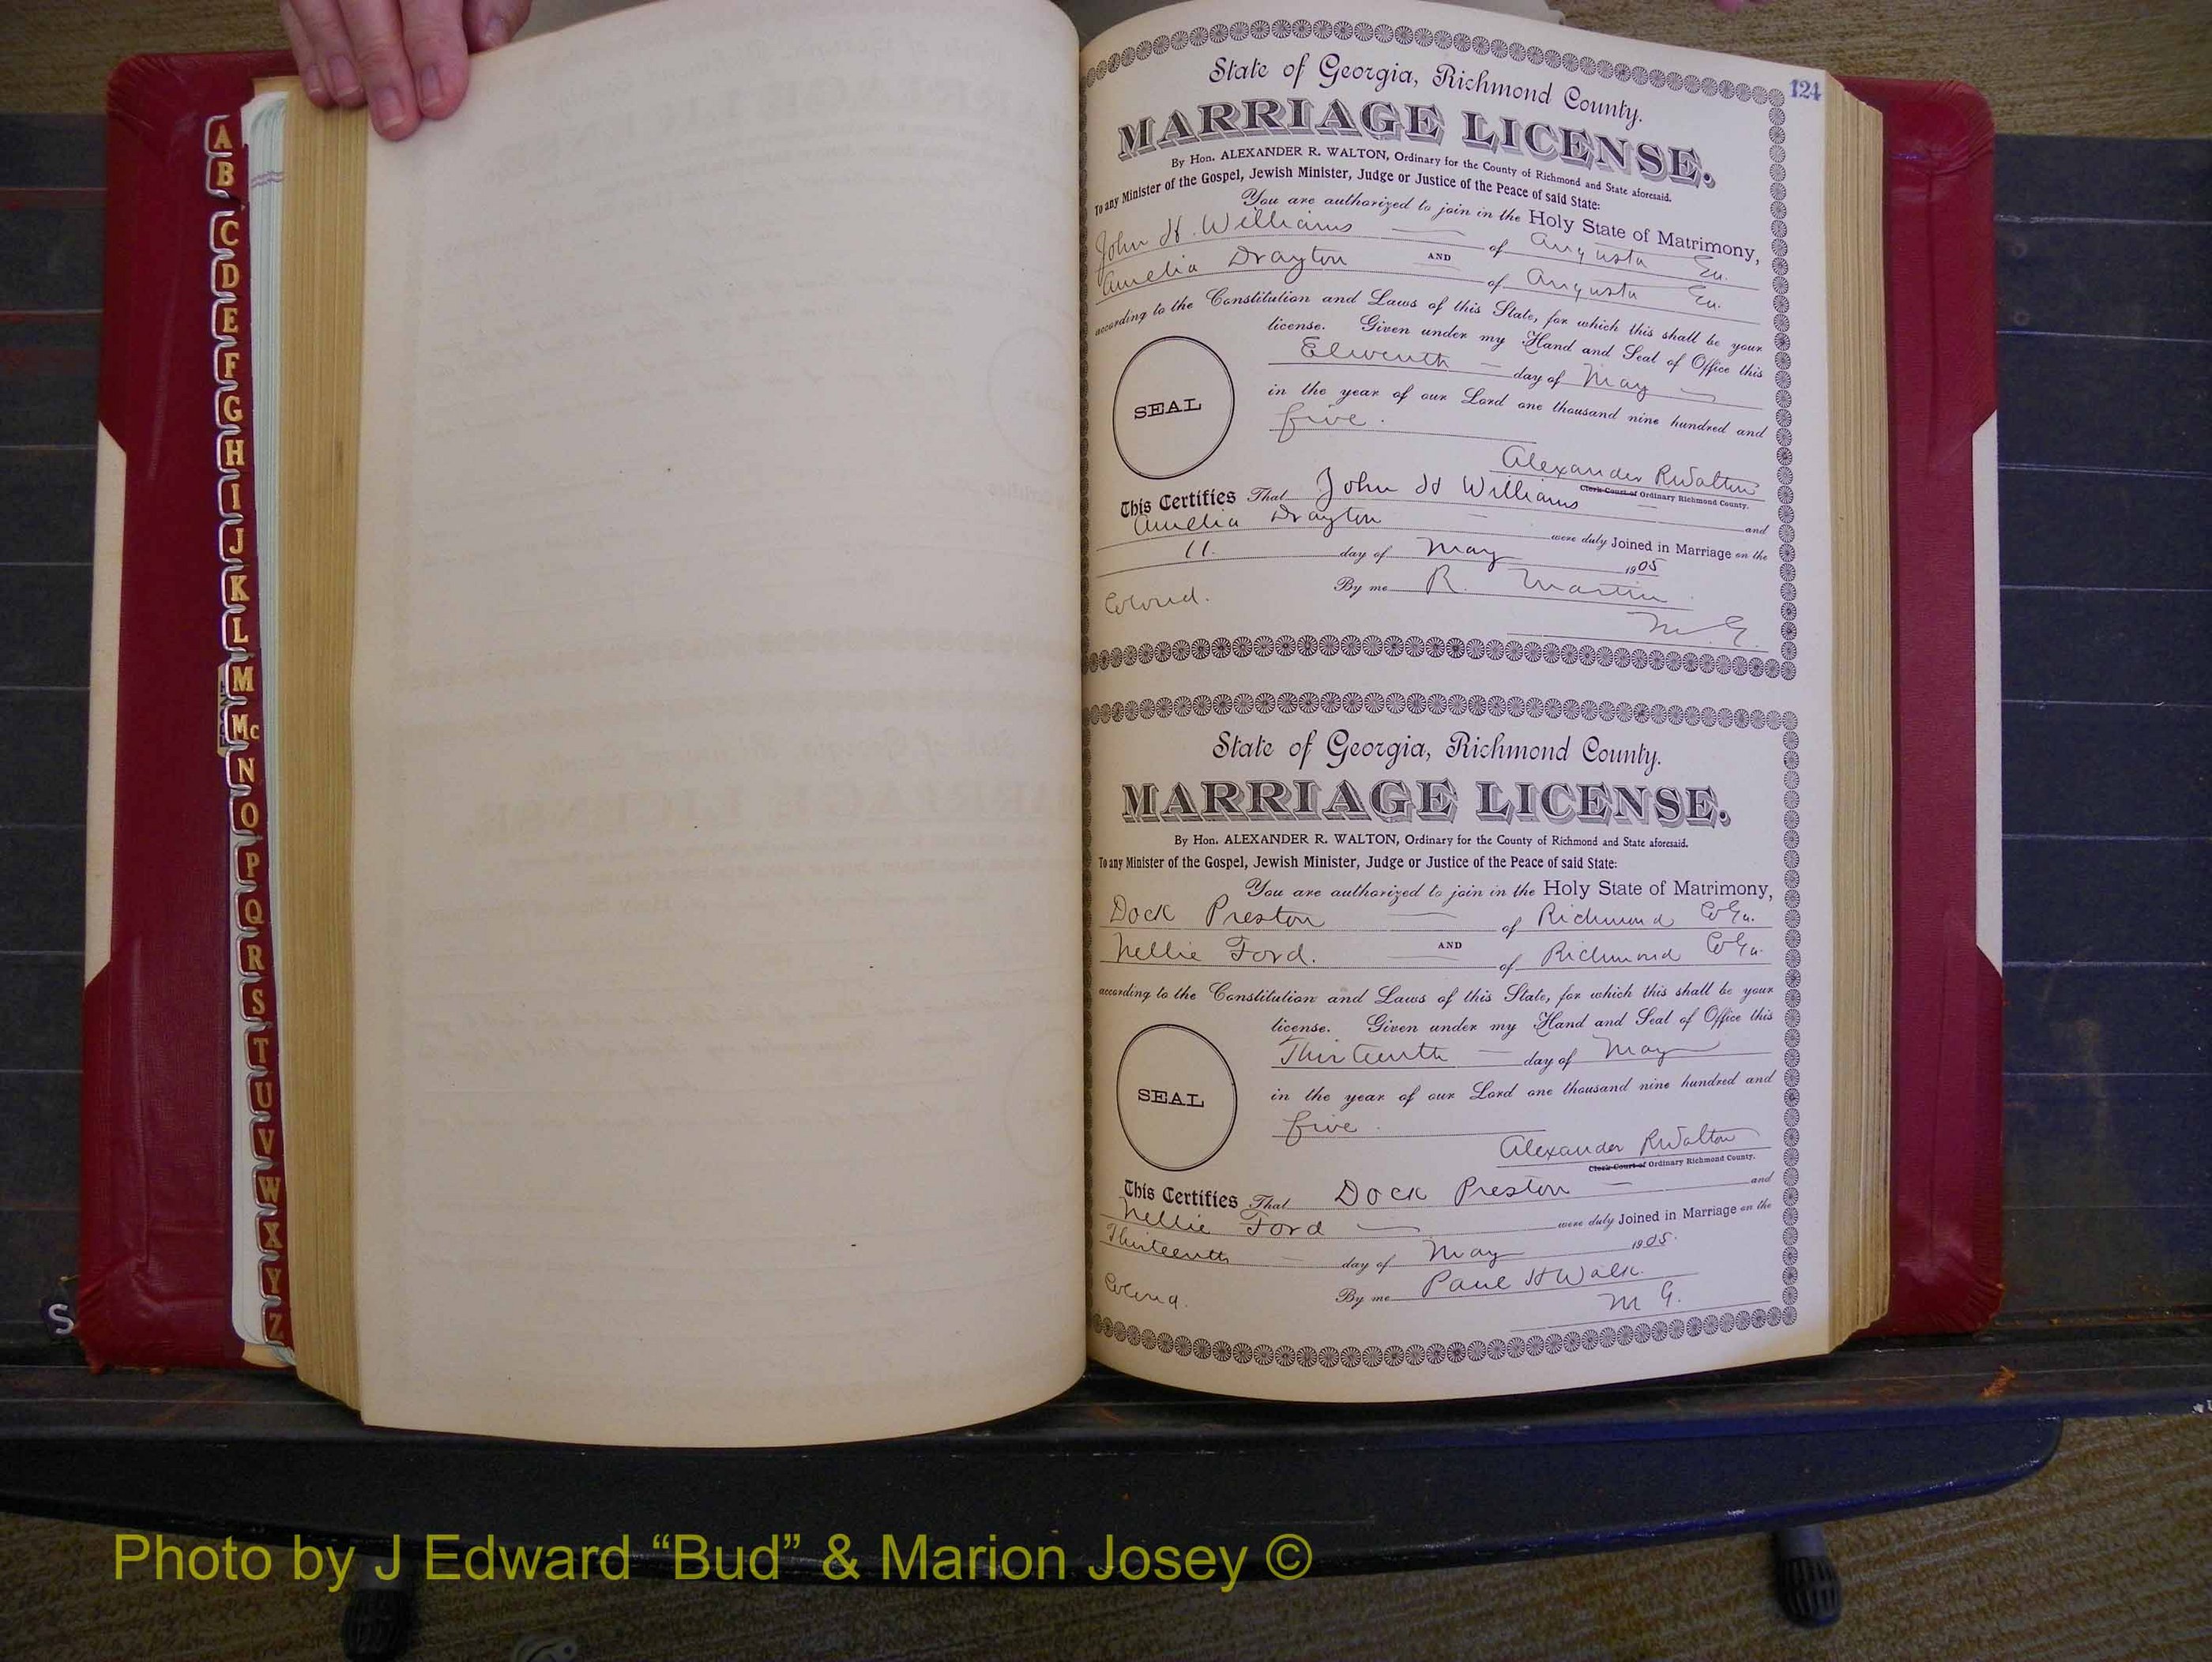 A
B
C
D
E
F
G
H
I
J
K
L
M
Mc
N
O
P
Q
R
S
T
U
V
W
X
Y
Z
S
124
State of Georgia, Richmond County.
MARRIAGE LICENSE.
By Hon. ALEXANDER R. WALTON, Ordinary for the County of Richmond and State aforesaid.
To any Minister of the Gospel, Jewish Minister, Judge or Justice of the Peace of said State:
You are authorized to join in the Holy State of Matrimony,
John H. Williams of Augusta Ga.
AND
Amelia Drayton of Augusta Ga.
according to the Constitution and Laws of this State, for which this shall be your
license. Given under my Hand and Seal of Office this
Eleventh day of May
in the year of our Lord one thousand nine hundred and
SEAL
five.
Alexander R Walton
Clerk Court of Ordinary Richmond County.
This Certifies That John H Williams and
Amelia Drayton were duly Joined in Marriage on the
11. day of May 1905
Colored. By me R. Martin
M. G.
State of Georgia, Richmond County.
MARRIAGE LICENSE.
By Hon. ALEXANDER R. WALTON, Ordinary for the County of Richmond and State aforesaid.
To any Minister of the Gospel, Jewish Minister, Judge or Justice of the Peace of said State:
You are authorized to join in the Holy State of Matrimony,
Dock Preston of Richmond Co Ga.
AND
Nellie Ford. of Richmond Co Ga.
according to the Constitution and Laws of this State, for which this shall be your
license. Given under my Hand and Seal of Office this
Thirteenth day of May
in the year of our Lord one thousand nine hundred and
SEAL
five.
Alexander R Walton
Clerk Court of Ordinary Richmond County.
This Certifies That Dock Preston and
Nellie Ford were duly Joined in Marriage on the
Thirteenth day of May 1905.
Colored. By me Paul H Walk.
M G.
Photo by J Edward “Bud” & Marion Josey ©